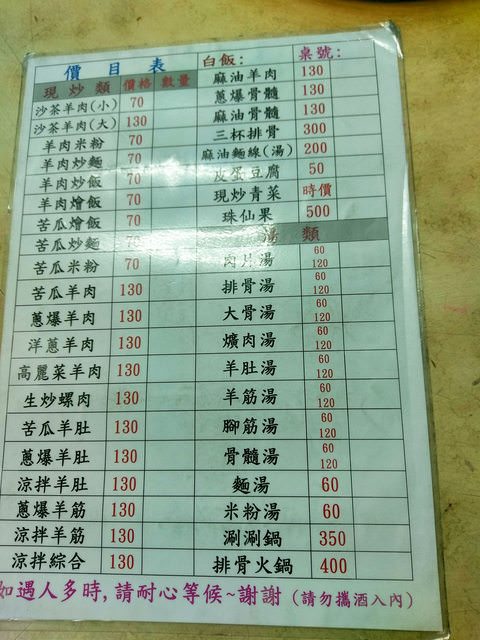 價目表 白飯: 桌號:
現炒類 價格 數量 麻油羊肉 130
沙茶羊肉(小) 70 蔥爆骨髓 130
沙茶羊肉(大) 130 麻油骨髓 130
羊肉米粉 70 三杯排骨 300
羊肉炒麵 70 麻油麵線(湯) 200
羊肉炒飯 70 皮蛋豆腐 50
羊肉燴飯 70 現炒青菜 時價
苦瓜燴飯 70 珠仙果 500
苦瓜炒麵 70 湯類
苦瓜米粉 70 肉片湯 60 120
苦瓜羊肉 130 排骨湯 60 120
蔥爆羊肉 130 大骨湯 60 120
洋蔥羊肉 130 爌肉湯 60 120
高麗菜羊肉 130 羊肚湯 60 120
生炒螺肉 130 羊筋湯 60 120
苦瓜羊肚 130 腳筋湯 60 120
蔥爆羊肚 130 骨髓湯 60 120
涼拌羊肚 130 麵湯 60
蔥爆羊筋 130 米粉湯 60
涼拌羊筋 130 涮涮鍋 350
涼拌綜合 130 排骨火鍋 400
如遇人多時,請耐心等候~謝謝 (請勿攜酒入內)